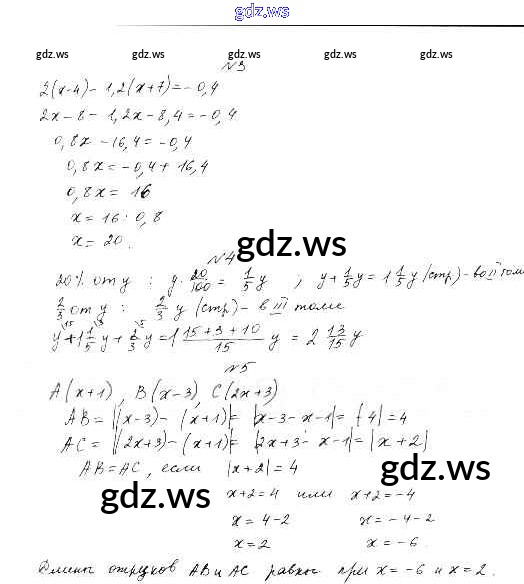 gdz.ws
gdz.ws gdz.ws gdz.ws gdz.ws gdz.ws
№3
2(x-4)- 1,2(x+7)= -0,4
2x-8- 1,2x-8,4=-0,4
0,8x -16,4=-0,4
0,8x=-0,4+ 16,4
0,8x= 16
x= 16 · 0,8
x= 20.
gdz.ws
№4
20% от y : y · 20/100 = 1/5 y ; y+ 1/5 y= 1 1/5 y (стр)- во II том
2/3 от y : 2/3 y (стр)- в III томе
y+1 1/5 y+ 2/3 y=1 (15+3+10)/15 y = 2 13/15 y
№5
A(x+1), B(x-3), C(2x+3)
AB= |(x-3)- (x+1)|= |x-3-x-1|= |-4|=4
AC= |(2x+3)-(x+1)|= |2x+3- x-1|=|x+2|
AB=AC, если |x+2|=4
gdz.ws gdz.ws
x+2=4 или x+2=-4
x=4-2 x=-4-2
x=2 x=-6.
Длины отрезков AB и AC равны при x=-6 и x=2.